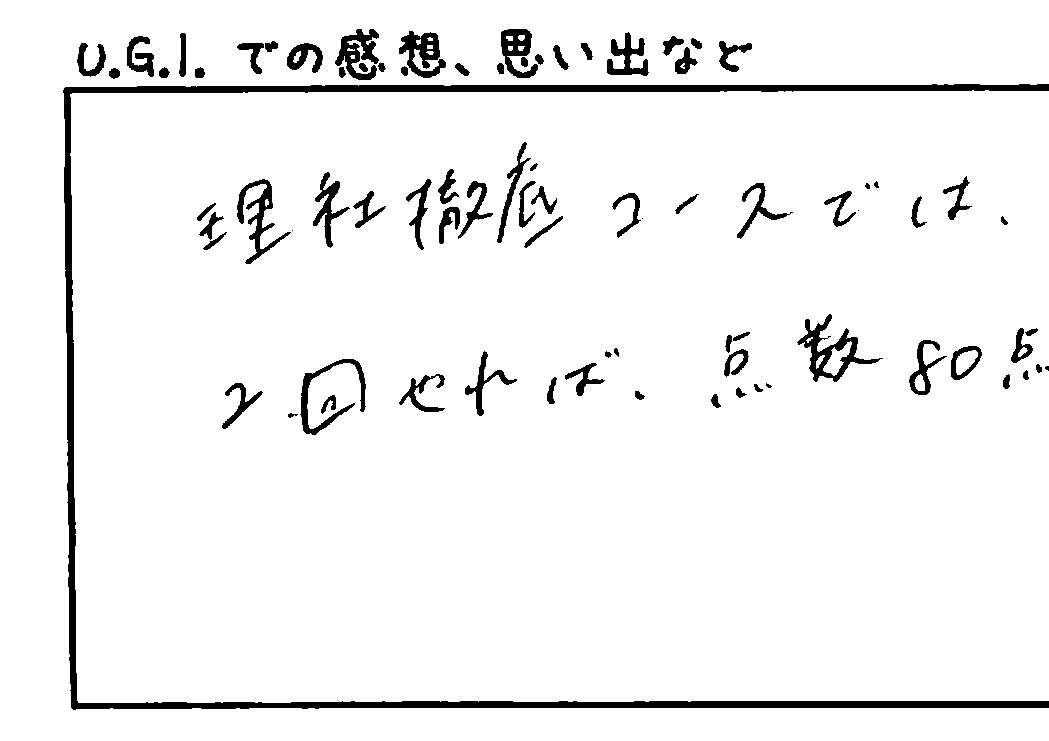 U.G.I. での感想、思い出など
理社徹底コースでは、
2回やれば、点数80点